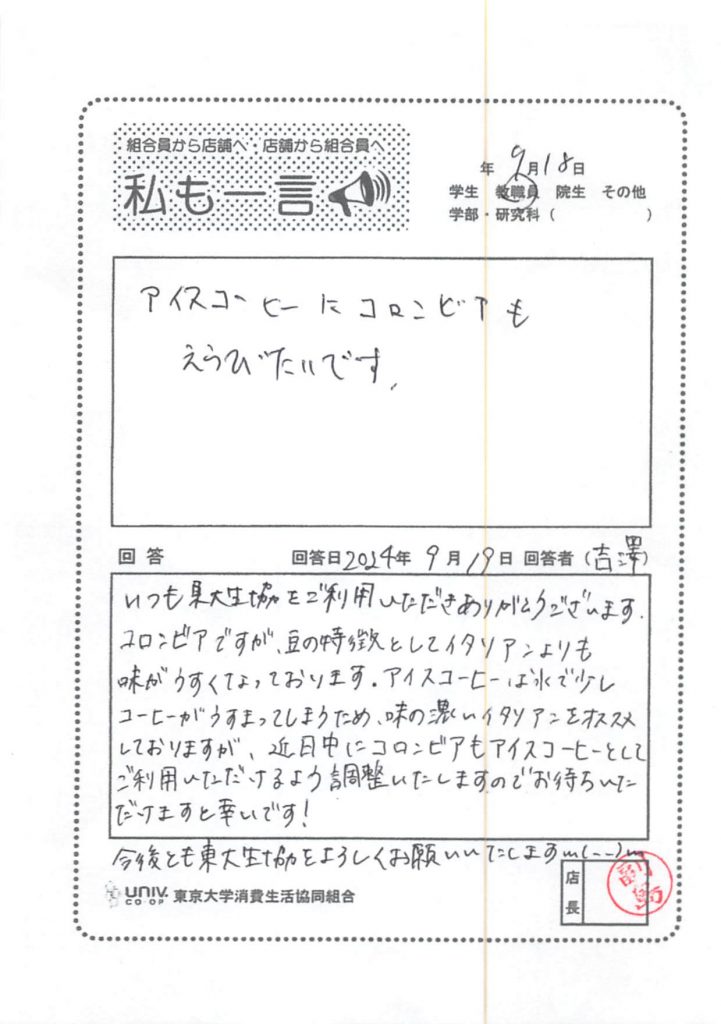 組合員から店舗へ・店舗から組合員へ
私も一言
年 9月18日
学生 教職員 院生 その他
学部・研究科( )
アイスコーヒーにコロンビアも
えらびたいです。
回答 回答日2024年 9月19日 回答者(吉澤)
いつも東大生協をご利用いただきありがとうございます。
コロンビアですが、豆の特徴としてイタリアンよりも
味がうすくなっております。アイスコーヒーは氷で少し
コーヒーがうすまってしまうため、味の濃いイタリアンをオススメ
しておりますが、近日中にコロンビアもアイスコーヒーとして
ご利用いただけるよう調整いたしますのでお待ちいた
だけますと幸いです!
今後とも東大生協をよろしくお願いいたしますm(--)m
UNIV.
CO-OP
東京大学消費生活協同組合
店長